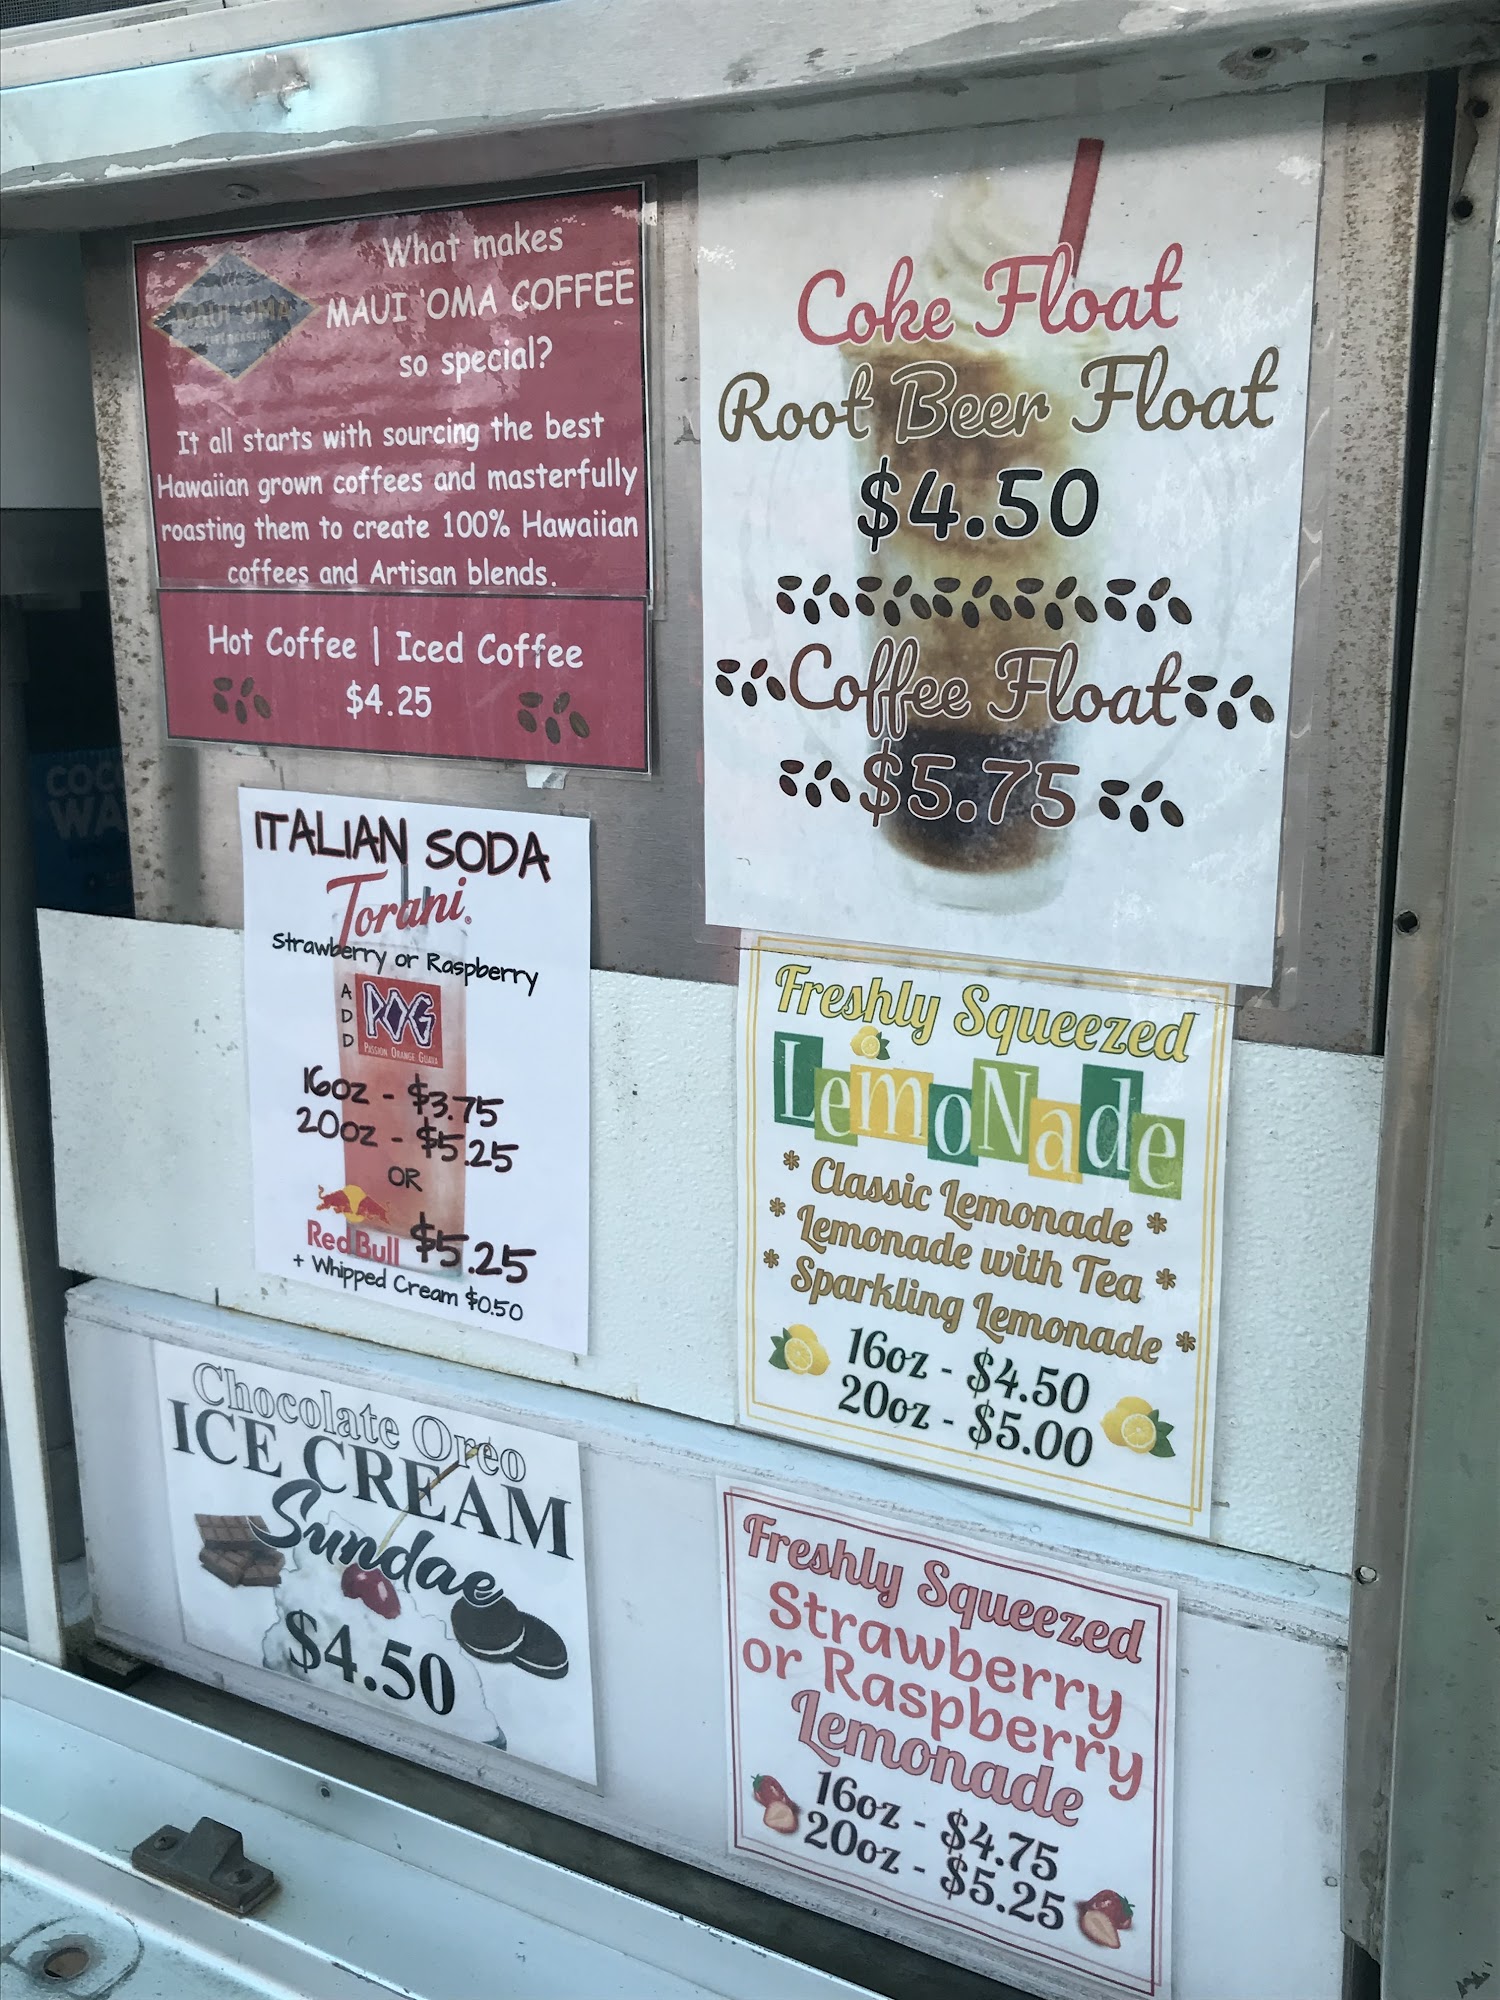 What makes
MAUI 'OMA COFFEE
so special?
MAUI 'OMA
It all starts with sourcing the best
Hawaiian grown coffees and masterfully
roasting them to create 100% Hawaiian
coffees and Artisan blends.
Hot Coffee | Iced Coffee
$4.25
Coke Float
Root Beer Float
$4.50
Coffee Float
$5.75
ITALIAN SODA
Torani
Strawberry or Raspberry
ADD
POG
PASSION ORANGE GUAVA
16oz - $3.75
20oz - $5.25
OR
Red Bull $5.25
+ Whipped Cream $0.50
Freshly Squeezed
LemoNade
* Classic Lemonade *
* Lemonade with Tea *
* Sparkling Lemonade *
16oz - $4.50
20oz - $5.00
Chocolate Oreo
ICE CREAM
Sundae
$4.50
Freshly Squeezed
Strawberry
or Raspberry
Lemonade
16oz - $4.75
20oz - $5.25